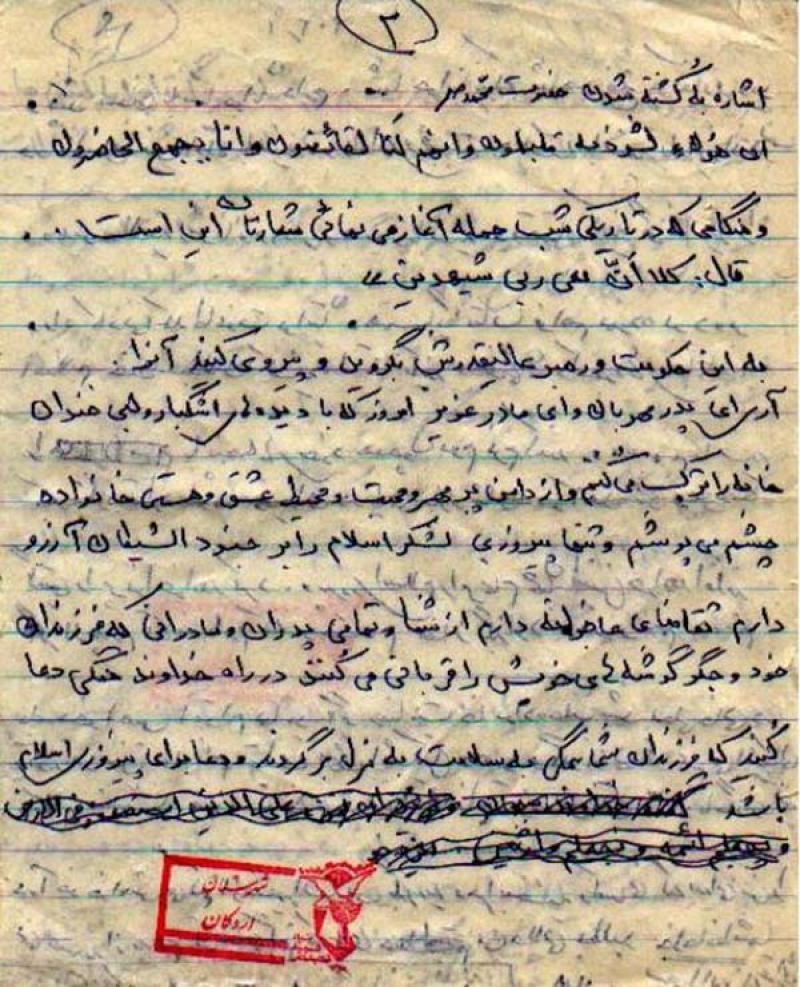 ۲
اشاره به کشته شدن حضرت محمد ص
ان هؤلاء لشرذمه قلیلون وانهم لنا لغائضون وانا بجمع الحاضرون
وهنگامی که در تاریکی شب حمله آغاز می نمائی شعارتان این است ..
قال: کلا أنَّ معی ربی شیهدین »
به این حکومت ورهبر عالیقدرش بگروین و پیروی کنید آنرا.
آری ای پدر مهربان وای مادر عزیز امروز که با دیده ای اشگبار ولبی خندان
خانه را ترک می کنم واز دامن پر مهر ومحبت ومحیط عشق وهستی خانواده
چشم می پوشم وتنها پیروزی لشگر اسلام را بر جنود الشیطان آرزو
دارم تقاضای عاجزانه دارم از شما وتمامی پدران ومادرانی که فرزندان
خود و جگر گوشه های خویش را قربانی می کنند در راه خداوند همگی دعا
کنید که فرزندان شما همگی به سلامت به منزل برگردند ودعا برای پیروزی اسلام
باشد
شهیدان
اردکان